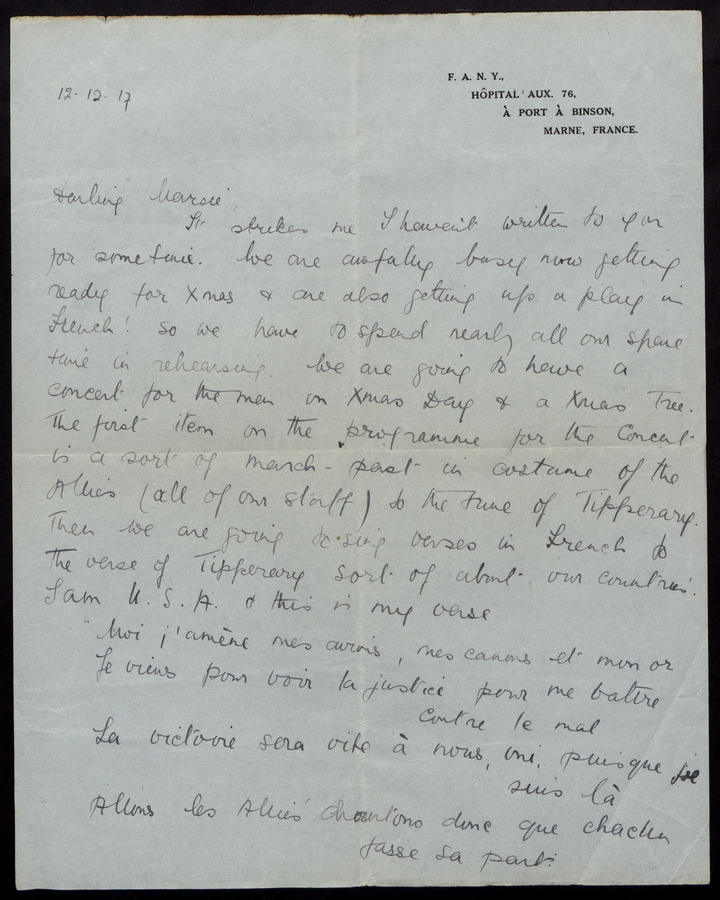 12-12-17
F. A. N. Y.,
HÔPITAL AUX. 76,
À PORT À BINSON,
MARNE, FRANCE.
Darling Marsie,
It strikes me I haven't written to you
for sometime. We are awfully busy now getting
ready for Xmas & are also getting up a play in
French! So we have to spend nearly all our spare
time in rehearsing. We are going to have a
concert for the men on Xmas Day & a Xmas Tree.
The first item on the programme for the Concert
is a sort of march-past in costume of the
Allies (all of our staff) to the tune of Tipperary.
Then we are going to sing verses in French to
the verse of Tipperary sort of about our countries.
I am U. S. A. & this is my verse
"Moi j'amène mes avions, mes canons et mon or
Je viens pour voir la justice pour me battre
contre le mal
La victoire sera vite à nous, oui, puisque je
suis là
Allons les Alliés chantons donc que chacun
fasse sa part.